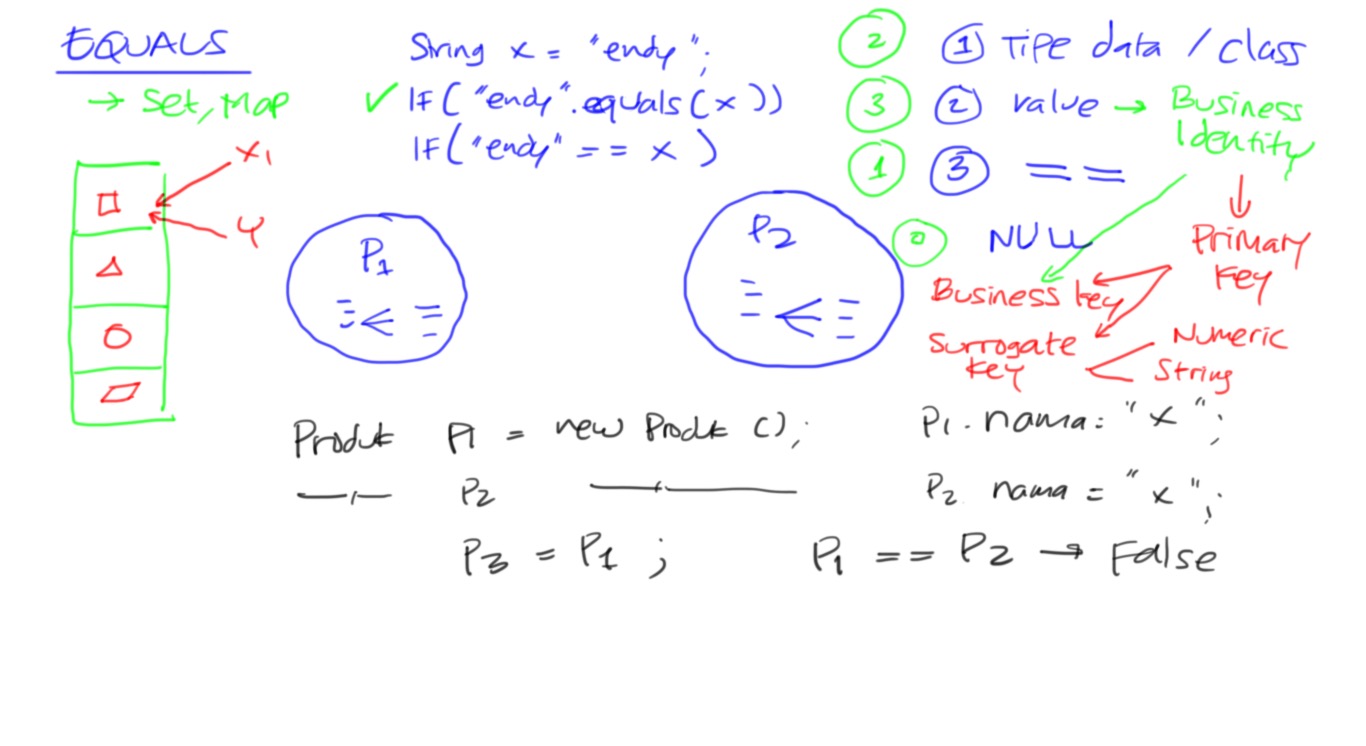 EQUALS
→ Set, Map
String x = "endy";
✓ IF("endy".equals(x))
IF("endy" == x)
② ① Tipe data / class
③ ② value → Business Identity
① ③ ==
⓪ NULL
Primary Key
Business key
Surrogate key
Numeric
String
x1
y
P1
P2
Produk P1 = new Produk();
P2
P3 = P1;
P1.nama = "x";
P2 nama = "x";
P1 == P2 → False